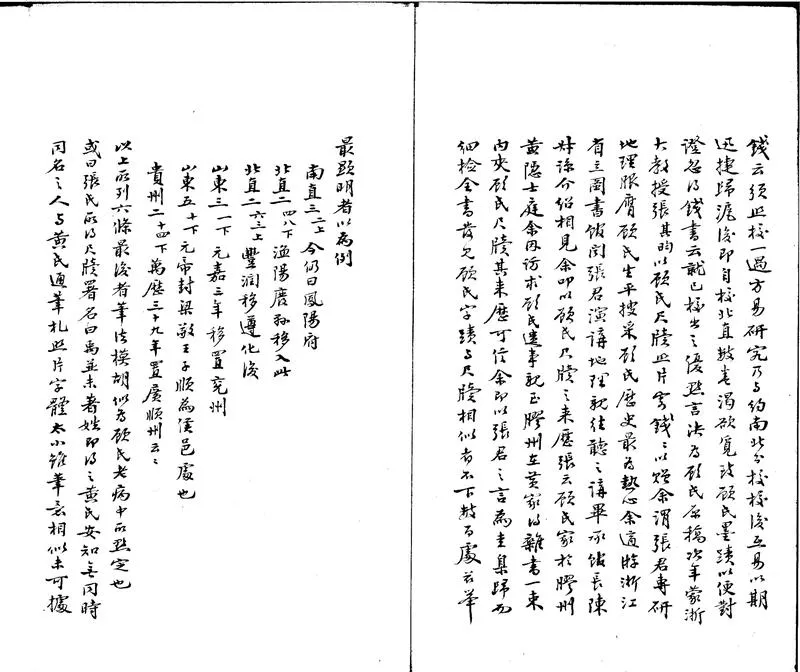 錢云須照校一過方易研究乃與約南北分校校後互易以期
迅捷歸滬後即自校北直數卷渴欲覓致顧民墨蹟以便對
證忽得錢書云就已校出之優點言決為顧民原稿次年蒙浙
大教授張其昀以顧民尺牘照片寄錢錢以贈余謂張君專研
地理服膺顧民生平搜采顧民歷史最為熱心余適游浙江
省立圖書館聞張君演講地理親往聽之講畢承館長陳
君介紹相見余叩以顧民尺牘之來歷張云顧民家於膠州
黃隱士庭余因訪求顧民遺事親至膠州在黃家得雜書一束
內夾顧民尺牘其來歷可信余即以張君之言為圭臬歸而
細檢全書發見顧民字蹟與尺牘相似者不下數百處茲舉
最顯明者以為例
南直三二上 今仍曰鳳陽府
北直二四八下 漁陽廣孫移入此
北直二六三上 豐潤移遵化後
山東三一下 元嘉三年移置兗州
山東五十下 元帝封梁敬王子順為侯邑處也
貴州二十四下 萬歷三十九年置廣順州云云
以上所列六條最後者筆法模胡似為顧民老病中所點定也
或曰張氏所得尺牘署名曰禹並未著姓即得之黃氏安知無同時
同名之人與黃氏通筆札照片字體太小雖筆意相似未可據